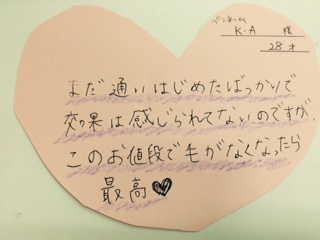 ペンネーム
K・A 様
28才
まだ通いはじめたばっかりで
効果は感じられてないのですが、
このお値段で毛がなくなったら
最高♥